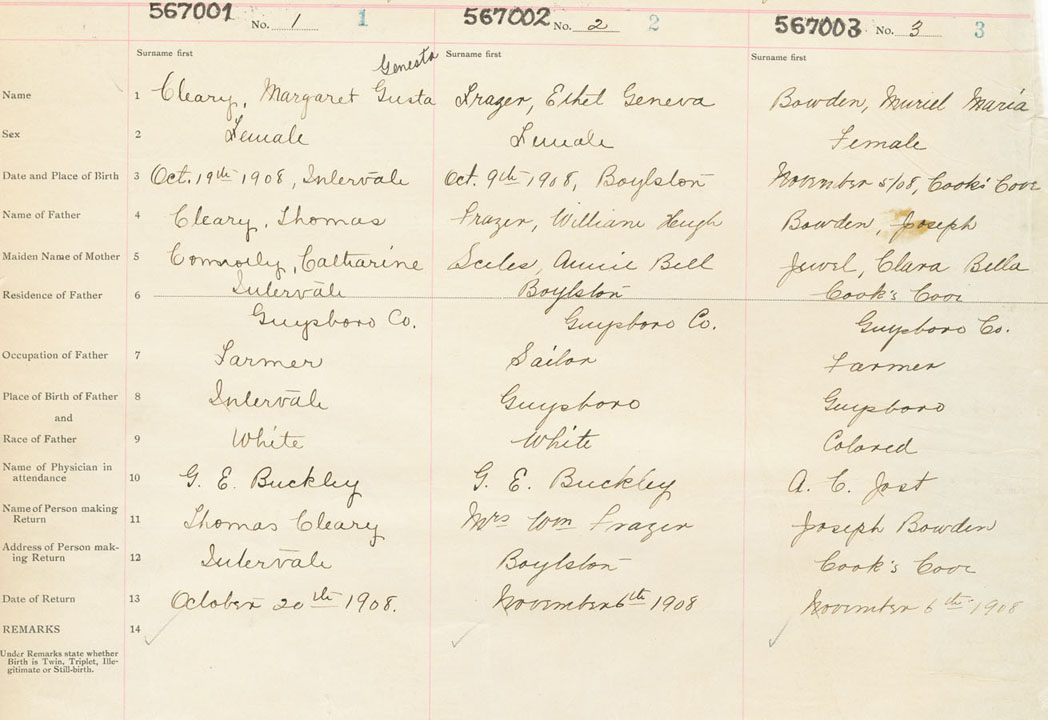 567001 No. 1 1 567002 No. 2 2 567003 No. 3 3
Surname first Surname first Surname first
Genesta
Name 1 Cleary, Margaret Gusta Frazer, Ethel Geneva Bowden, Muriel Maria
Sex 2 Female Female Female
Date and Place of Birth 3 Oct. 19th 1908, Intervale Oct. 9th 1908, Boylston November 5/08, Cook's Cove
Name of Father 4 Cleary, Thomas Frazer, William Hugh Bowden, Joseph
Maiden Name of Mother 5 Connolly, Catharine Sceles, Annie Bell Jewel, Clara Bella
Residence of Father 6 Intervale Boylston Cook's Cove
Guysboro Co. Guysboro Co. Guysboro Co.
Occupation of Father 7 Farmer Sailor Farmer
Place of Birth of Father 8 Intervale Guysboro Guysboro
and
Race of Father 9 White White Colored
Name of Physician in
attendance 10 G. E. Buckley G. E. Buckley A. C. Jost
Name of Person making
Return 11 Thomas Cleary Mrs Wm Frazer Joseph Bowden
Address of Person mak-
ing Return 12 Intervale Boylston Cook's Cove
Date of Return 13 October 20th 1908. November 6th 1908 November 6th 1908
REMARKS 14
Under Remarks state whether
Birth is Twin, Triplet, Ille-
gitimate or Still-birth.